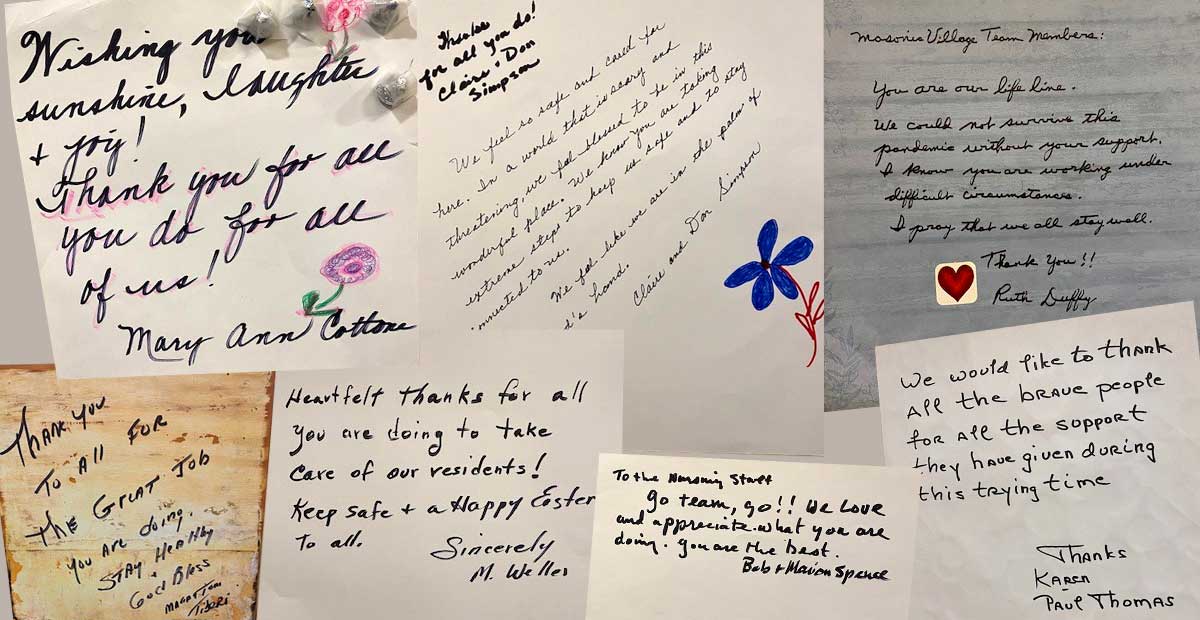 Wishing you
sunshine, laughter
+ joy!
Thank you for all
you do for all
of us!
Mary Ann Cottone
Thanks
for all you do!
Claire & Don
Simpson
We feel so safe and cared for
here. In a world that is scary and
threatening, we feel blessed to be in this
wonderful place. We know you are taking
extreme steps to keep us safe and to stay
connected to us.
We feel like we are in the palm of
d's hand.
Claire and Don Simpson
Masonic Village Team Members:
You are our life line.
We could not survive this
pandemic without your support.
I know you are working under
difficult circumstances.
I pray that we all stay well.
Thank You!!
Ruth Duffy
THANK YOU
TO ALL FOR
THE GREAT JOB
YOU ARE doing.
STAY HEAlthy
God Bless
Heartfelt thanks for all
you are doing to take
care of our residents!
Keep safe + a Happy Easter
to all.
Sincerely
M. Weller
To the Nursing Staff
go team, go!! We love
and appreciate what you are
doing. you are the best.
Bob + Marion Spence
We would like to thank
All the brave people
for All the support
they have given during
this trying time
Thanks
Karen
Paul Thomas